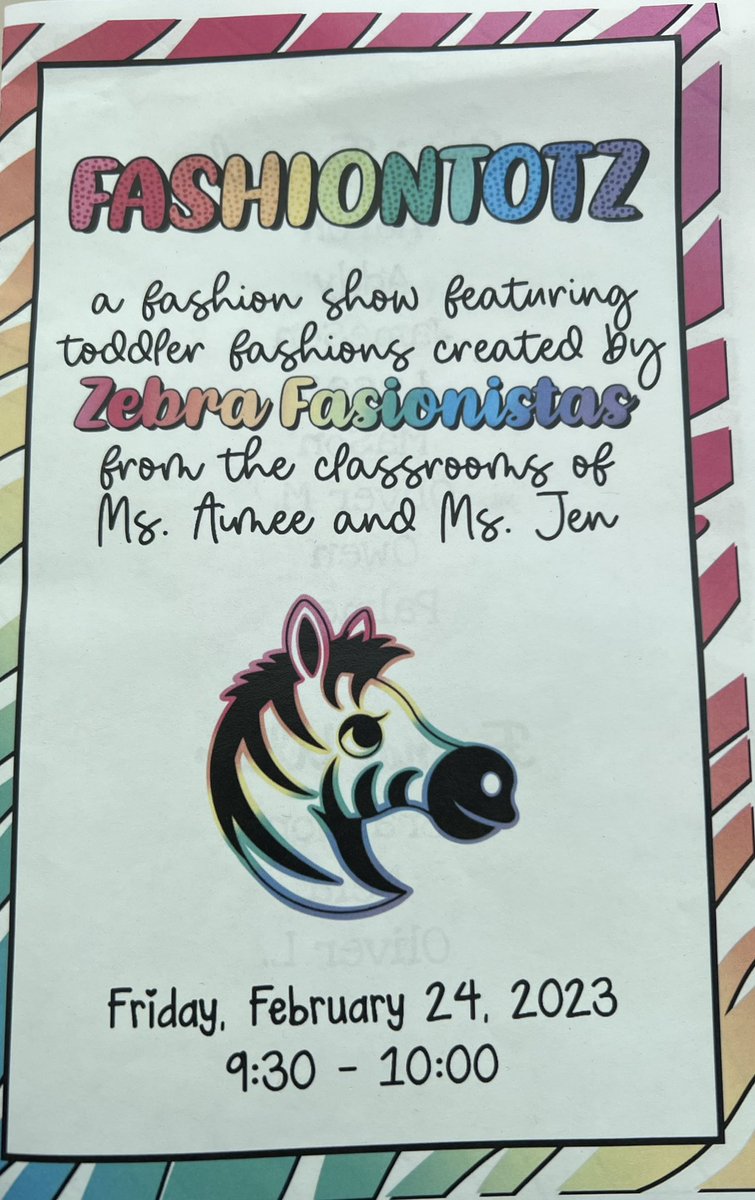 FASHIONTOTZ
a fashion show featuring
toddler fashions created by
Zebra Fasionistas
from the classrooms of
Ms. Aimee and Ms. Jen
Oliver L.
Friday, February 24, 2023
9:30 - 10:00